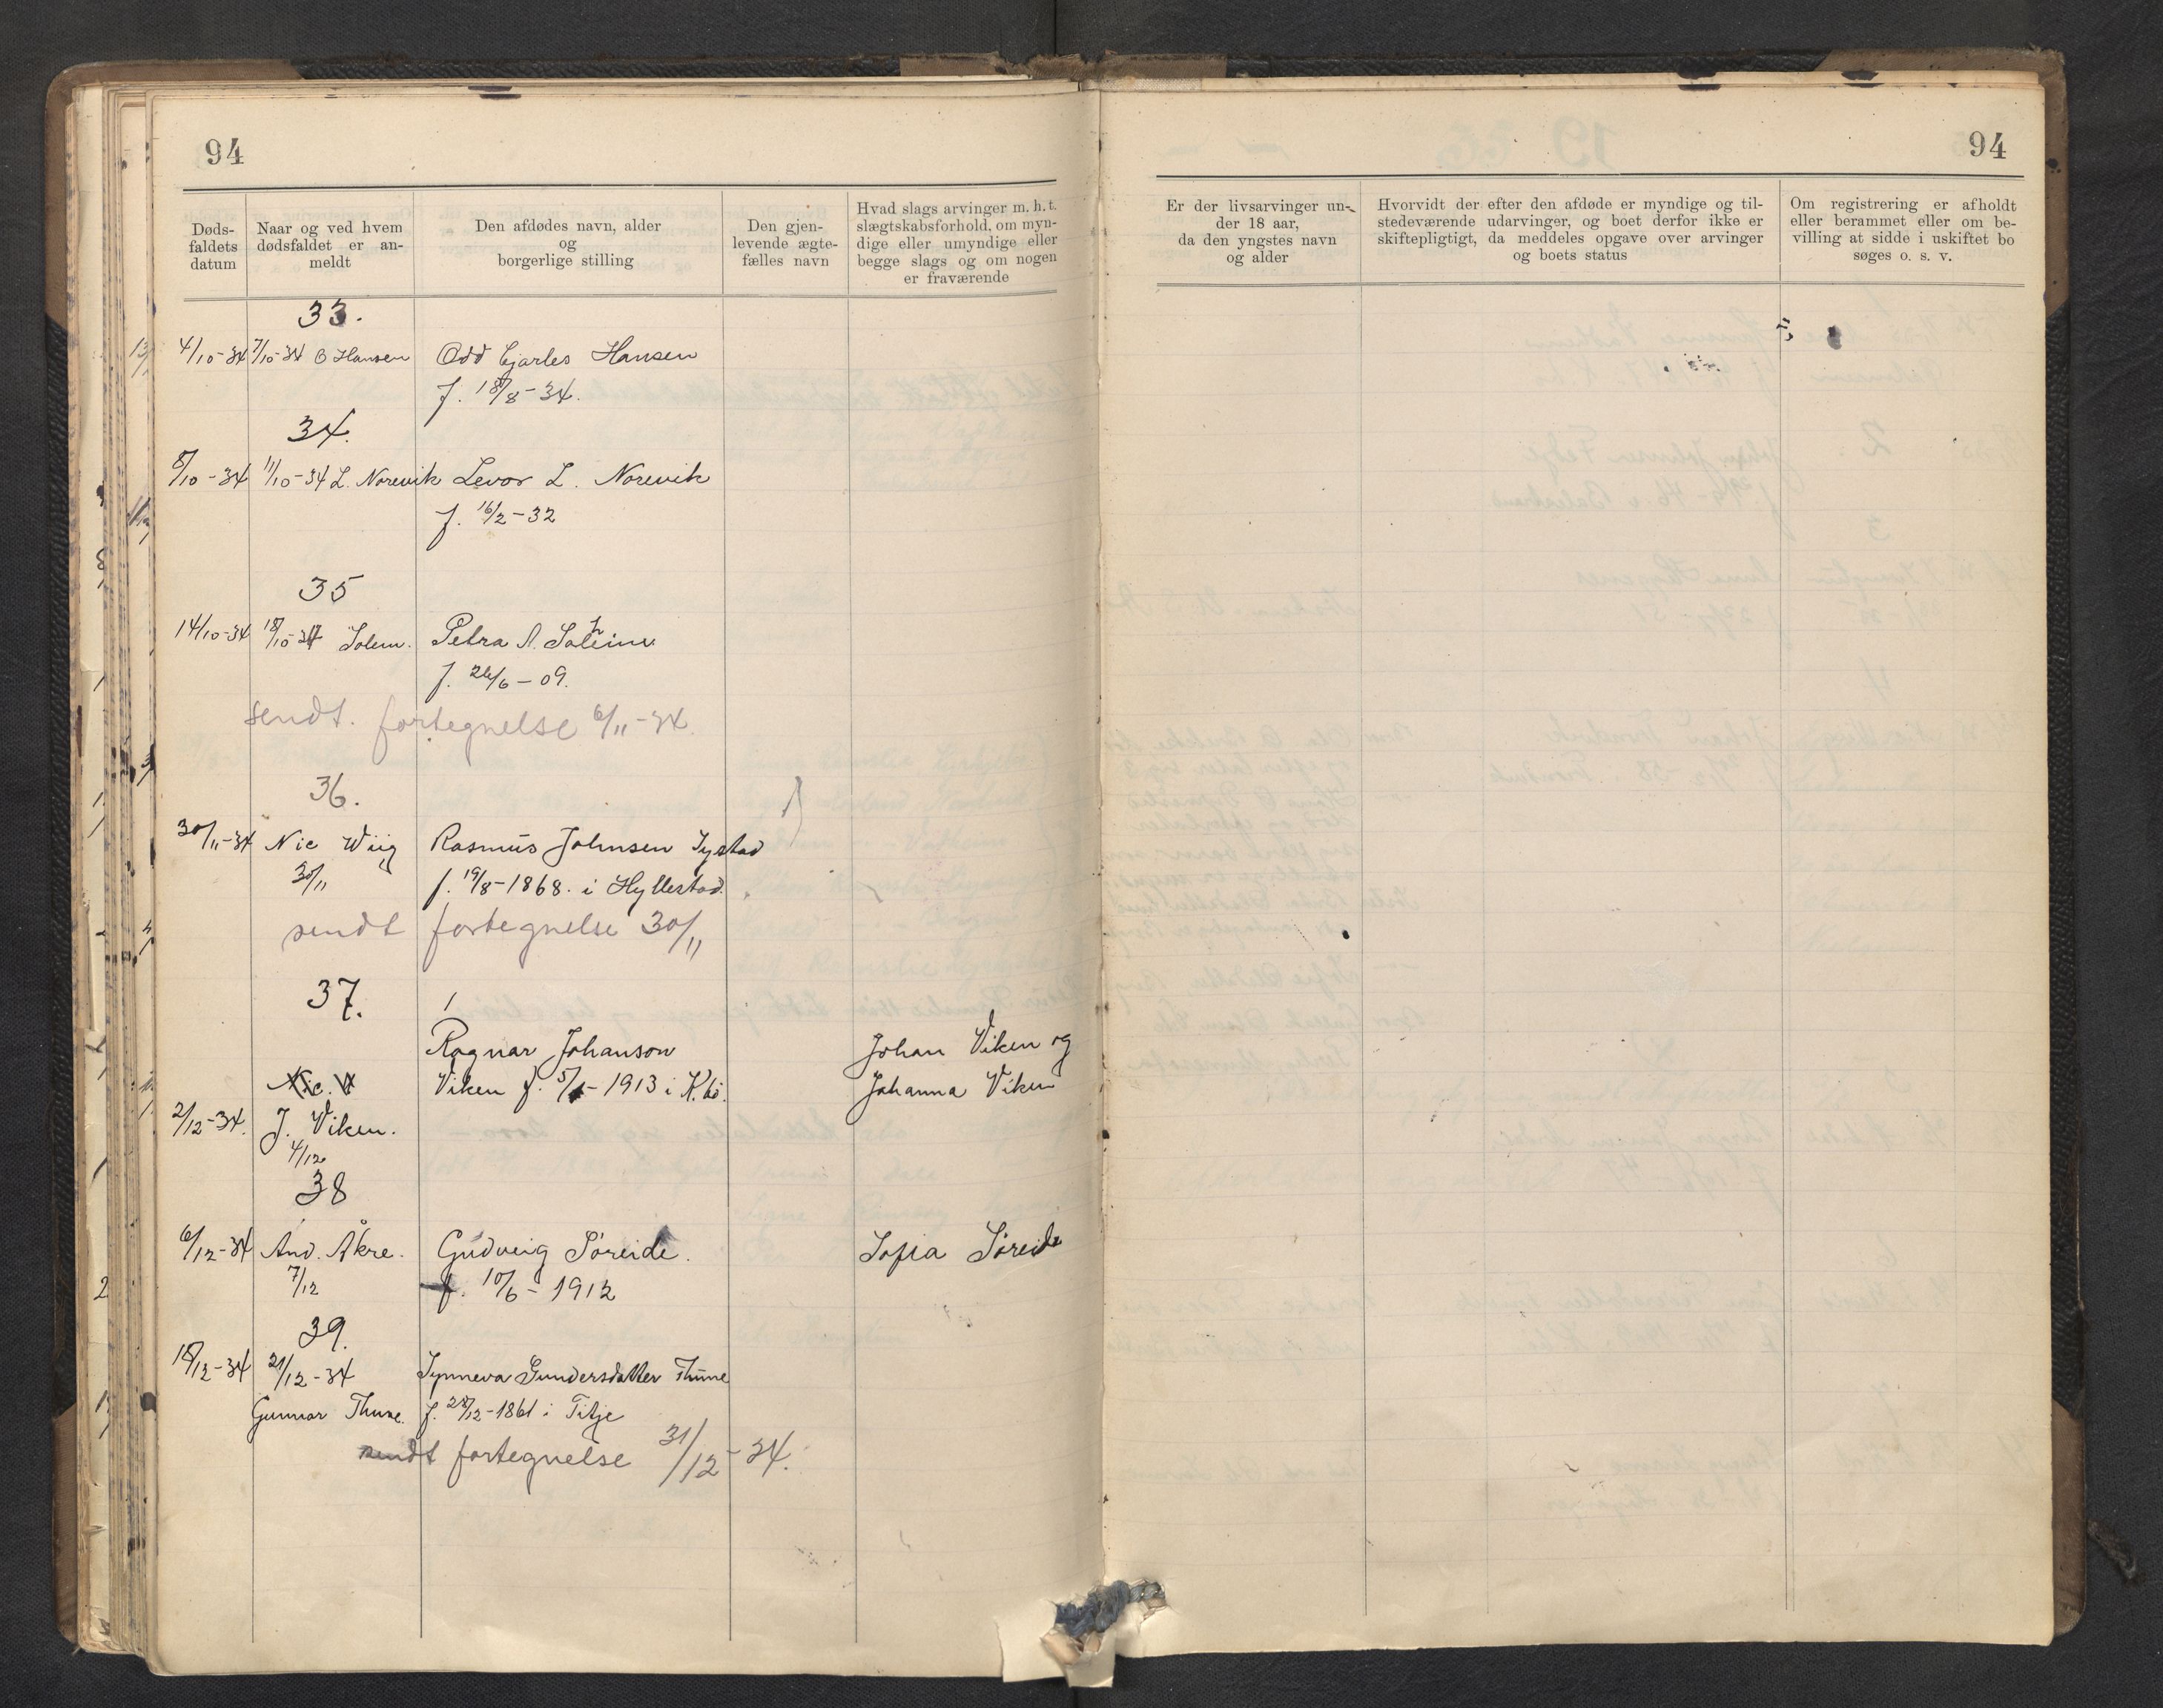 94
Døds-
faldets
datum
Naar og ved hvem
dødsfaldet er an-
meldt
Den afdødes navn, alder
og
borgerlige stilling
Den gjen-
levende ægte-
fælles navn
Hvad slags arvinger m. h. t.
slægtskabsforhold, om myn-
dige eller umyndige eller
begge slags og om nogen
er fraværende
33.
4/10-34 7/10-34 O Hansen Odd Charles Hansen
f. 18/8-34.
34.
8/10-34 11/10-34 L. Norevik Levor L. Norevik
f. 16/2-32
35
14/10-34 18/10-34 Solem. Petra A.
f. 26/6-09.
sendt. fortegnelse 6/11-34.
36.
30/11-34 Nic Wiig Rasmus Johnsen Systad
30/11 f. 19/8-1868. i Hyllestad.
sendt fortegnelse 30/11
37.
Ragnar Johanson Johan Viken og
Nic. W Viken f. 5/1-1913 i K.bø. Johanna Viken
2/12-34. J. Viken.
4/12
38
6/12-34 And. Åkre. Gudveig Søreide. Sofia Søreide
7/12 f. 10/6-1912
39.
18/12-34 21/12-34 Synneva Gundersdatter Thune
Gunnar Thune. f. 28/12-1861 i
sendt fortegnelse 31/12-34.
94
Er der livsarvinger un-
der 18 aar,
da den yngstes navn
og alder
Hvorvidt der efter den afdøde er myndige og til-
stedeværende udarvinger, og boet derfor ikke er
skiftepligtigt, da meddeles opgave over arvinger
og boets status
Om registrering er afholdt
eller berammet eller om be-
villing at sidde i uskiftet bo
søges o. s. v.